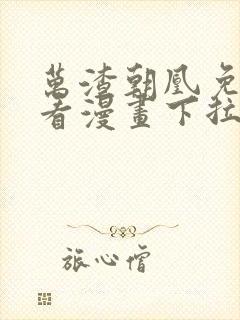 萬渣朝凰免
看漫畫下拉
旅心僧